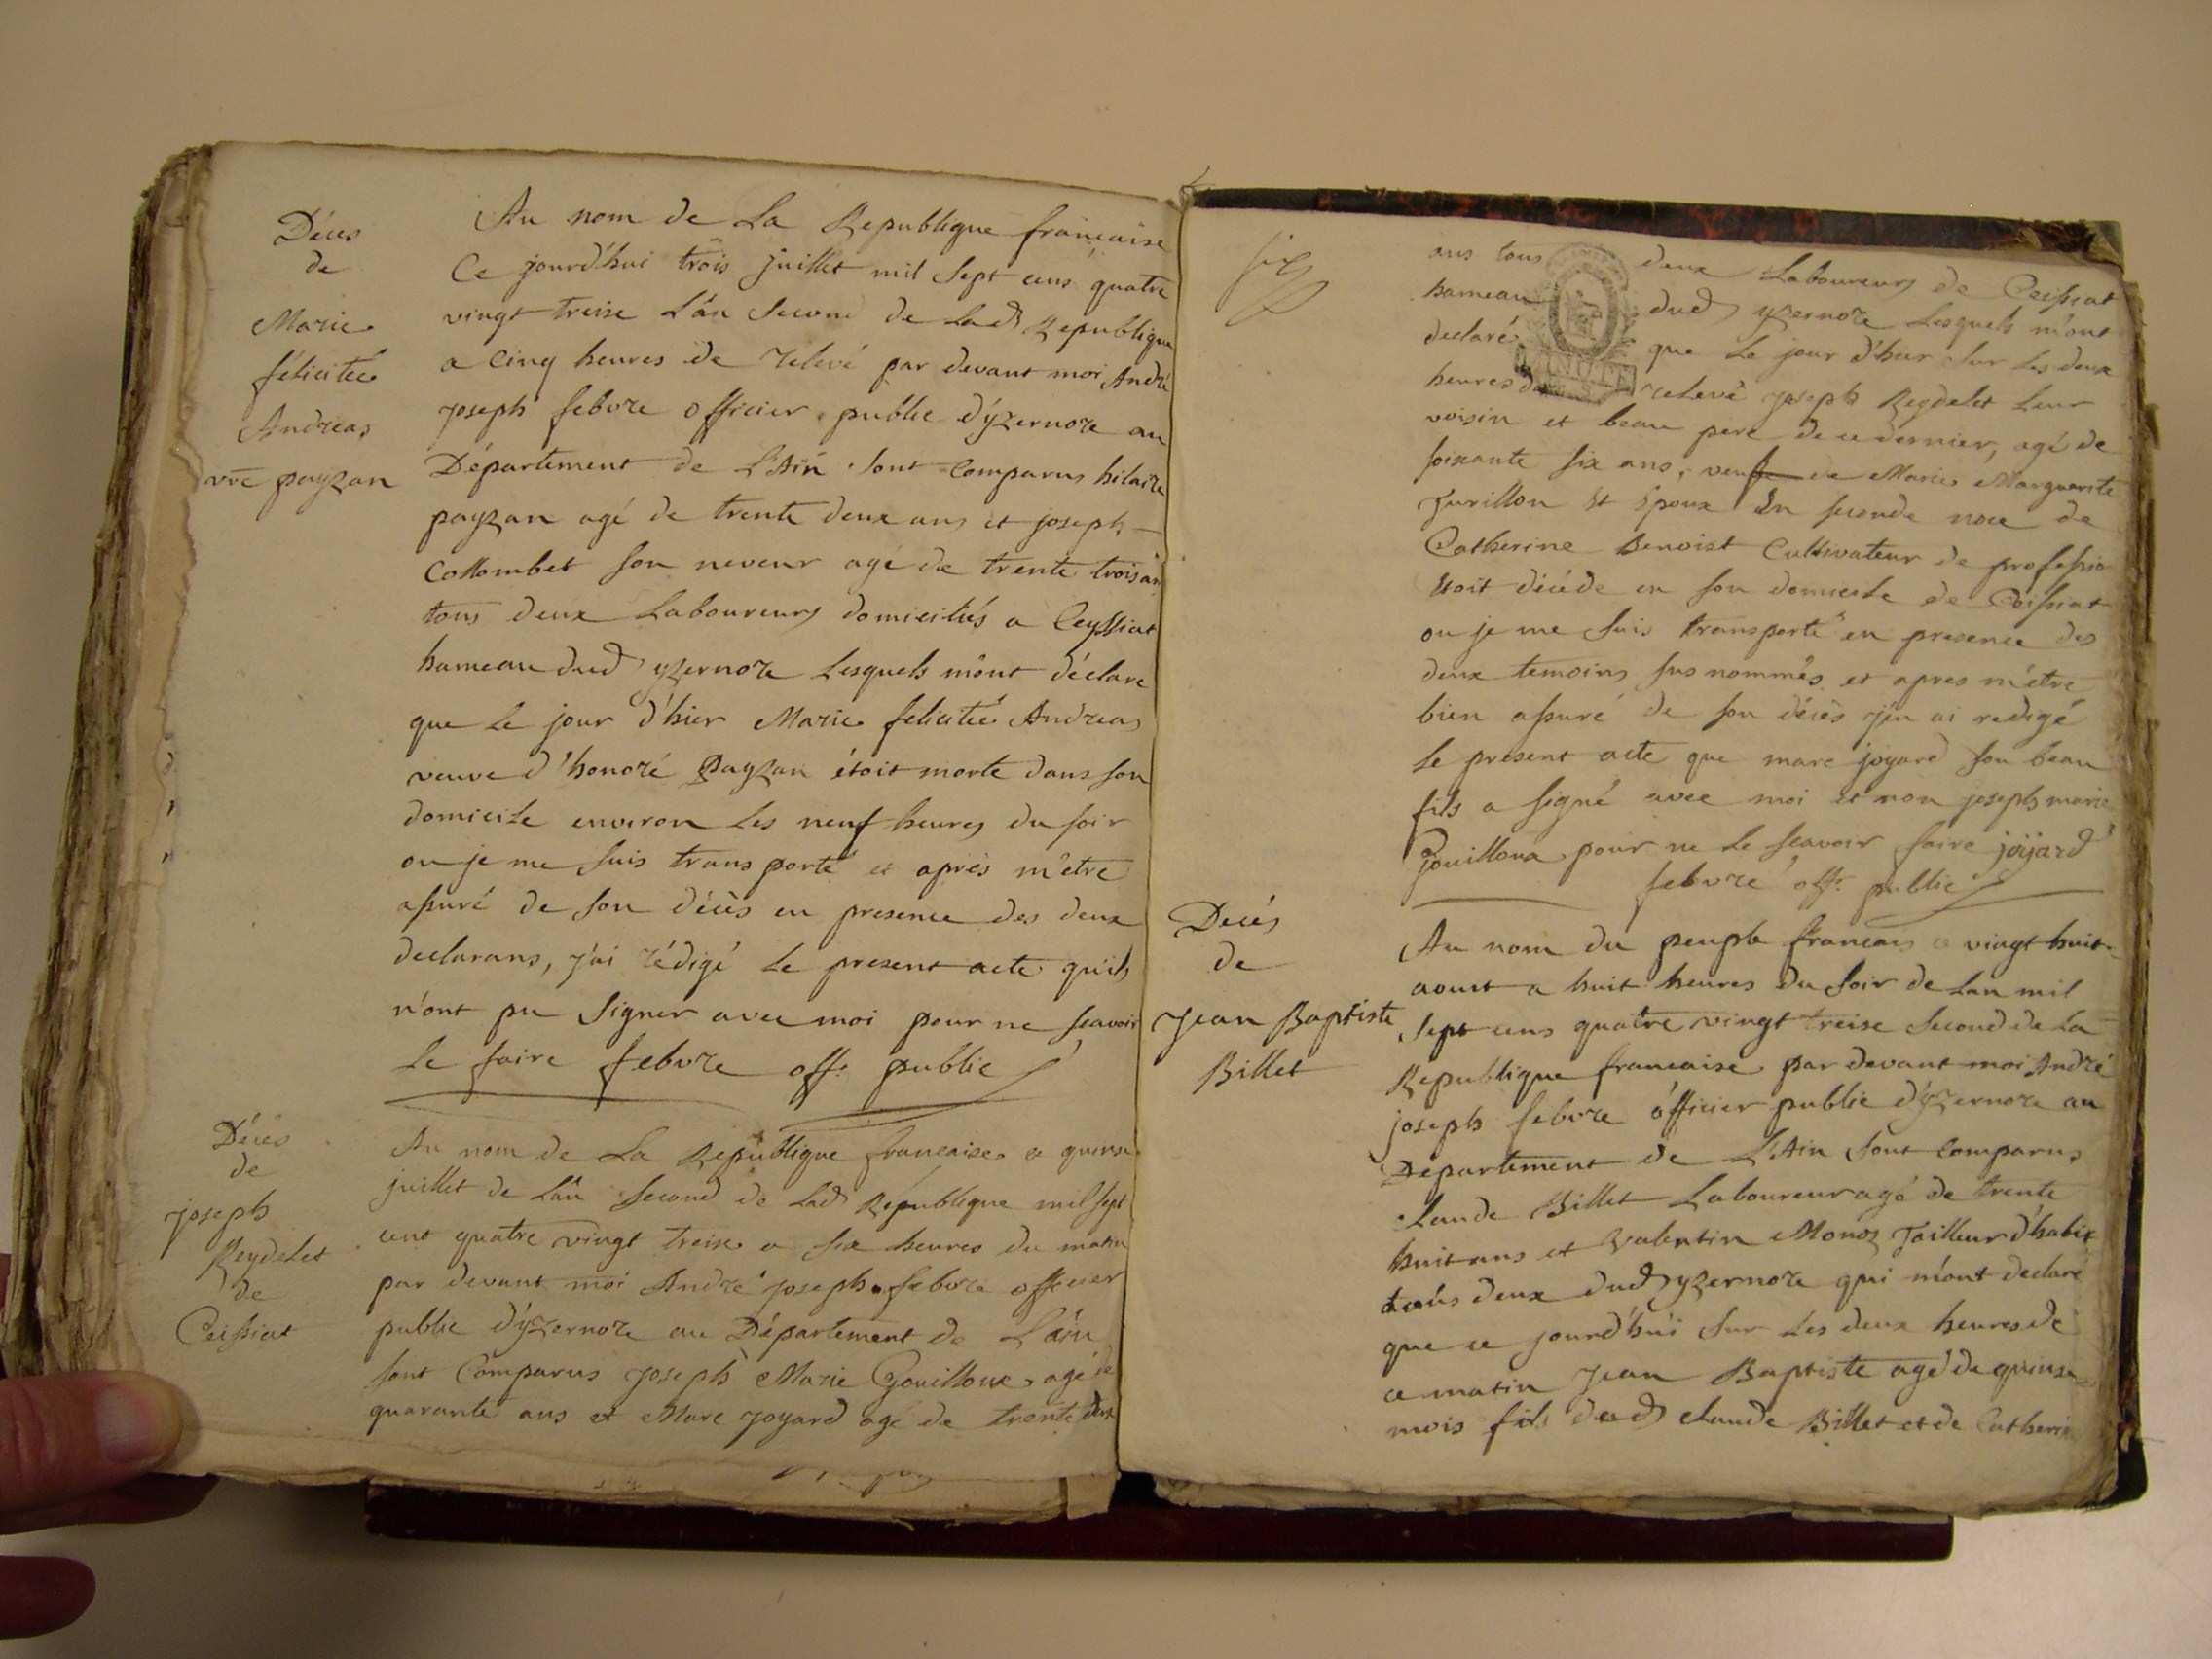 Décès
de
Marie
félicitée
Andreas
vve payzan
Au nom de La Republique francaise
Ce jourd'hui trois juillet mil sept cens quatre
vingt treise L'an Second de Lad Republique
a Cinq heures de relevé par devant moi André
joseph febvre officier public d'yzernore au
Département de L'Ain sont Comparus hilaire
payzan agé de trente deux ans et joseph
Collombet son neveur agé de trente trois an
tous deux Laboureurs domiciliés a Ceyssiat
hameau dud yzernore Lesquels m'ont déclare
que Le jour d'hier Marie felicitée Andreas
veuve d'honoré Payzan étoit morte dans son
domicile environ Les neuf heures du soir
ou je me suis transporté et après m'etre
assuré de son décès en presence des deux
declarans, j'ai rédigé Le present acte qu'ils
n'ont pu Signer avec moi pour ne scavoir
Le faire febvre off. public
Décès
de
joseph
Reydelet
de
Ceissiat
Au nom de La Republique francaise a quinse
juillet de L'an Second de Lad Republique mil sept
cent quatre vingt treise a six heures du matin
par devant moi André joseph febvre officier
public d'yzernore au Département de L'ain
sont Comparus joseph Marie Gouilloux agé de
quarante ans et Marc joyard agé de trente
ans tous deux Laboureurs de Ceissiat
hameau dud yzernore Lesquels m'ont
declaré que Le jour d'hier sur Les deux
heures de relevé joseph Reydelet Leur
voisin et beau pere de ce dernier, agé de
soixante six ans, veuf de Marie Marguerite
Jurillon Et Epoux En seconde noce de
Catherine Benoist Cultivateur de professio
Etoit décédé en son domicile de Ceissiat
ou je me suis transporté en presence des
deux temoins sus nommés et apres m'être
bien assuré de son décès j'en ai redigé
Le present acte que marc joyard son beau
fils a signé avec moi et non joseph marie
Gouilloux pour ne Le scavoir faire joyard
febvre off. public
Decés
de
Jean Baptiste
Billet
Au nom du peuple francais a vingt huit
aoust a huit heures du soir de Lan mil
sept cens quatre vingt treise Second de La
Republique francaise par devant moi André
joseph febvre officier public d'yzernore au
Département de L'Ain sont Comparus
Laude Billet Laboureur agé de trente
huit ans et Valentin Monoz Tailleur d'habit
tous deux dud yzernore qui m'ont declaré
que ce jourd'hui sur Les deux heures de
ce matin Jean Baptiste agé de quinse
mois fils dud Claude Billet et de Catheri